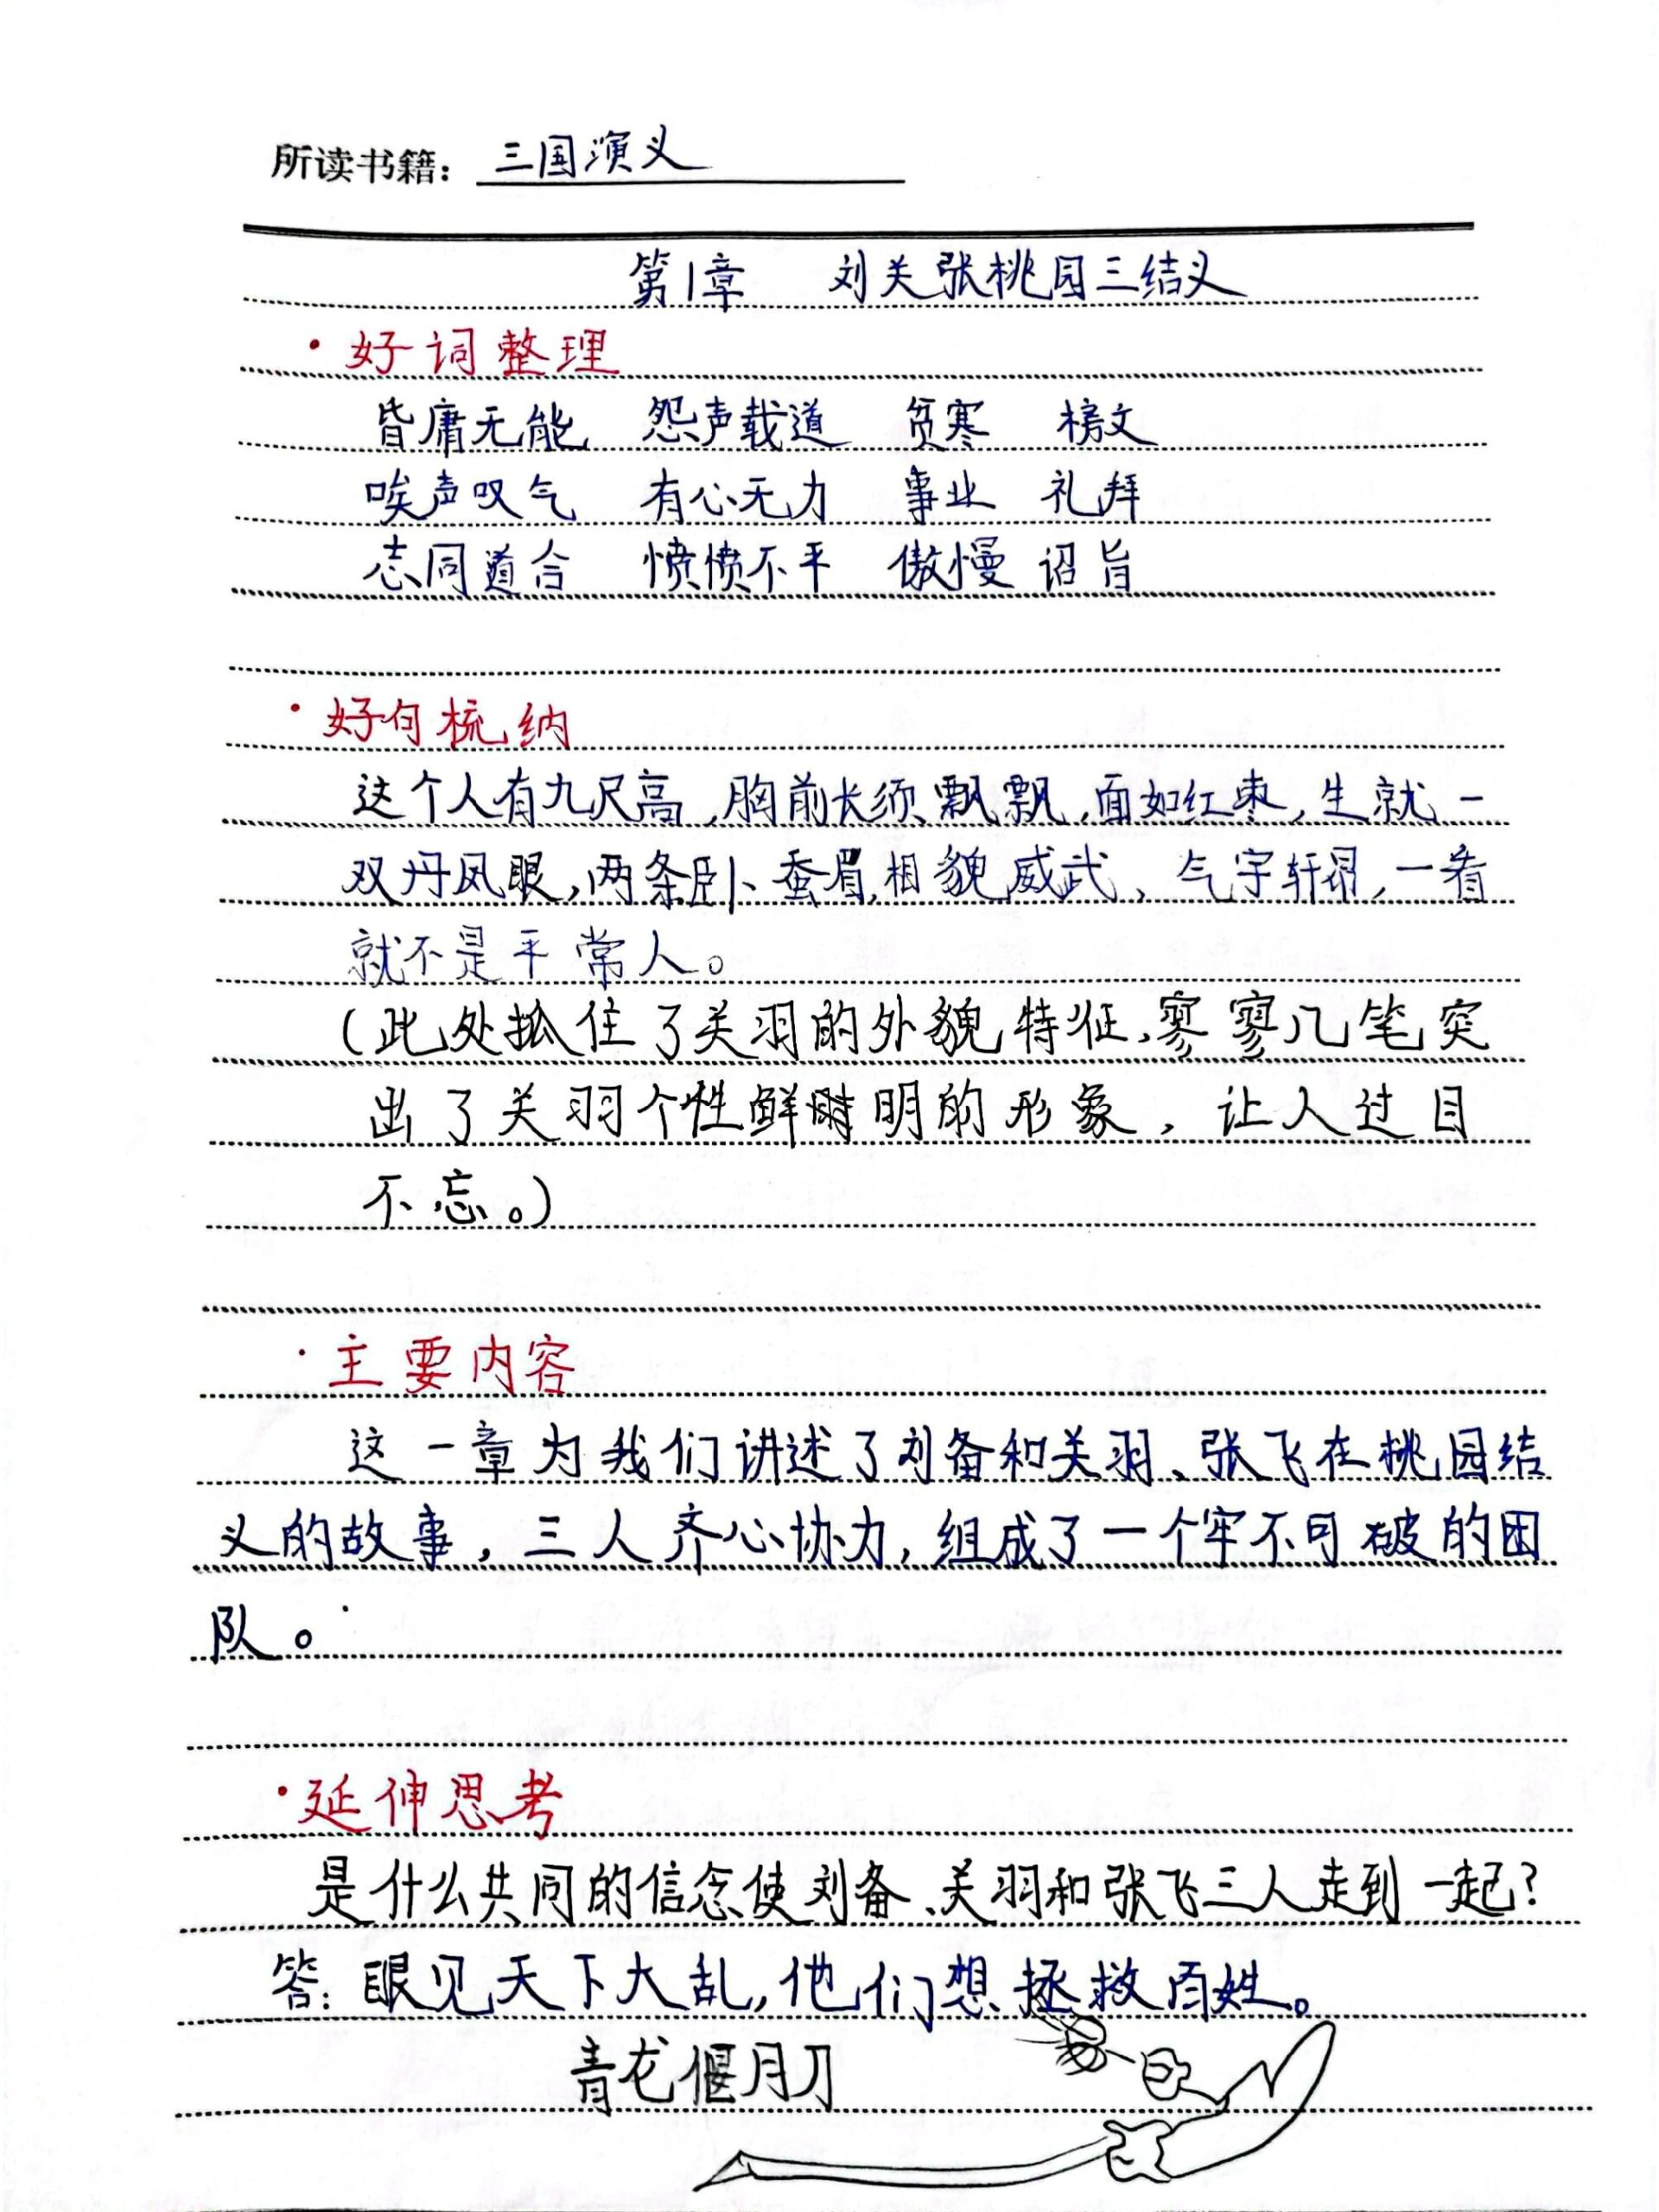 所读书籍：三国演义
第1章 刘关张桃园三结义
·好词整理
昏庸无能 怨声载道 贫寒 榜文
唉声叹气 有心无力 事业 礼拜
志同道合 愤愤不平 傲慢 诏旨
·好句梳纳
这个人有九尺高，胸前长须飘飘，面如红枣，生就一
双丹凤眼，两条卧蚕眉，相貌威武、气宇轩昂，一看
就不是平常人。
（此处抓住了关羽的外貌特征，寥寥几笔突
出了关羽个性鲜明的形象，让人过目
不忘。）
·主要内容
这一章为我们讲述了刘备和关羽、张飞在桃园结
义的故事，三人齐心协力，组成了一个牢不可破的团
队。
·延伸思考
是什么共同的信念使刘备、关羽和张飞三人走到一起？
答：眼见天下大乱，他们想拯救百姓。
青龙偃月刀